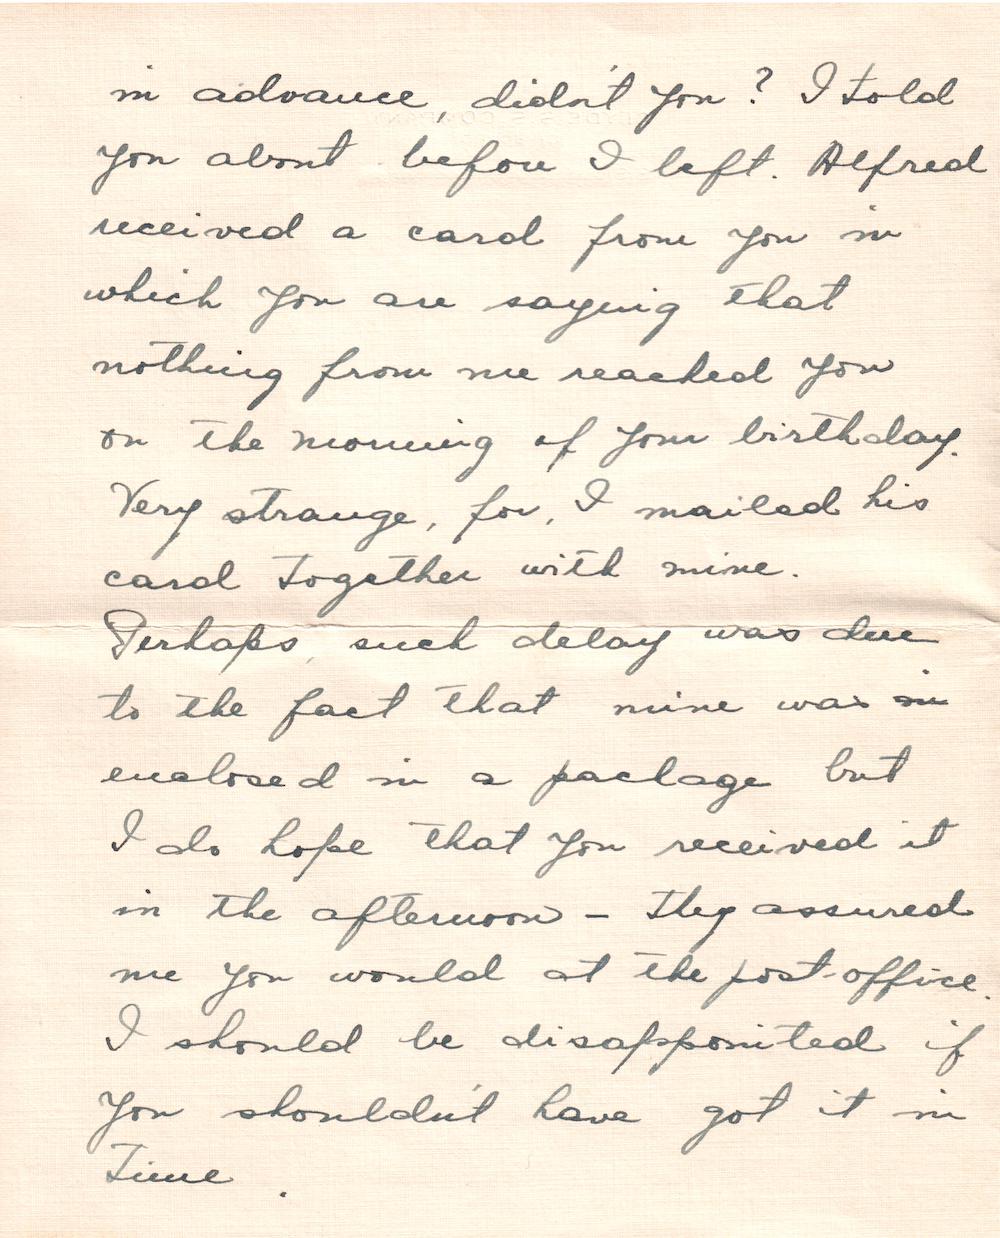 in advance, didn't you? I told
you about before I left. Alfred
received a card from you in
which you are saying that
nothing from me reached you
on the morning of your birthday.
Very strange, for, I mailed his
card together with mine.
Perhaps, such delay was due
to the fact that mine was in
enclosed in a package but
I do hope that you received it
in the afternoon – they assured
me you would at the post-office.
I should be disappointed if
you shouldn't have got it in
time.